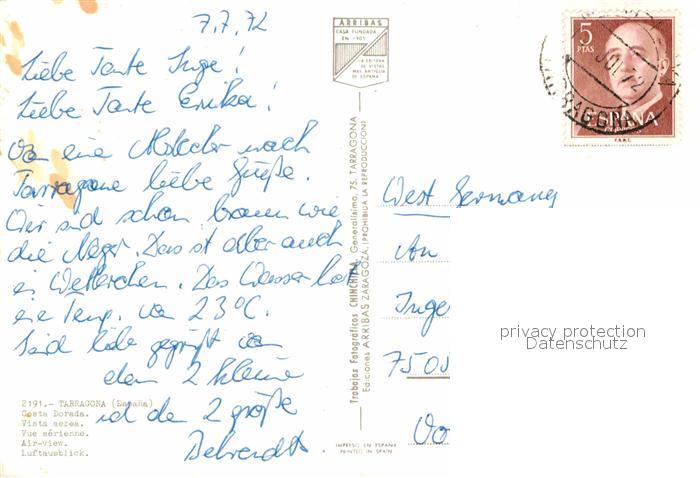 7.7.72
Liebe Tante Inge!
Liebe Tante Erika!
Von eine nach
Tarragona liebe Grüße.
Wir sind schon braun wie
die Neger. Das ist aber auch
ein Wetterchen. Das Wasser hat
eine Temp. von 23°C.
Seid lieb gegrüßt von
den 2 kleine
und den 2 große
Behrendts.
2191.- TARRAGONA (España)
Costa Dorada.
Vista aerea.
Vue aérienne.
Air-view.
Luftausblick.
ARRIBAS
CASA FUNDADA
EN 1905
LA EDITORA
DE VISTAS
MAS ANTIGUA
DE ESPAÑA
Trabajos Fotográficos CHINCHILLA, Generalísimo, 75. TARRAGONA
Ediciones ARRIBAS ZARAGOZA. (PROHIBIDA LA REPRODUCCION)
IMPRESO EN ESPAÑA
PRINTED IN SPAIN
5
PTAS
ESPAÑA
CORREOS
F.N.M.T.
TARRAGONA
West Germany
An
Inge
privacy protection
Datenschutz